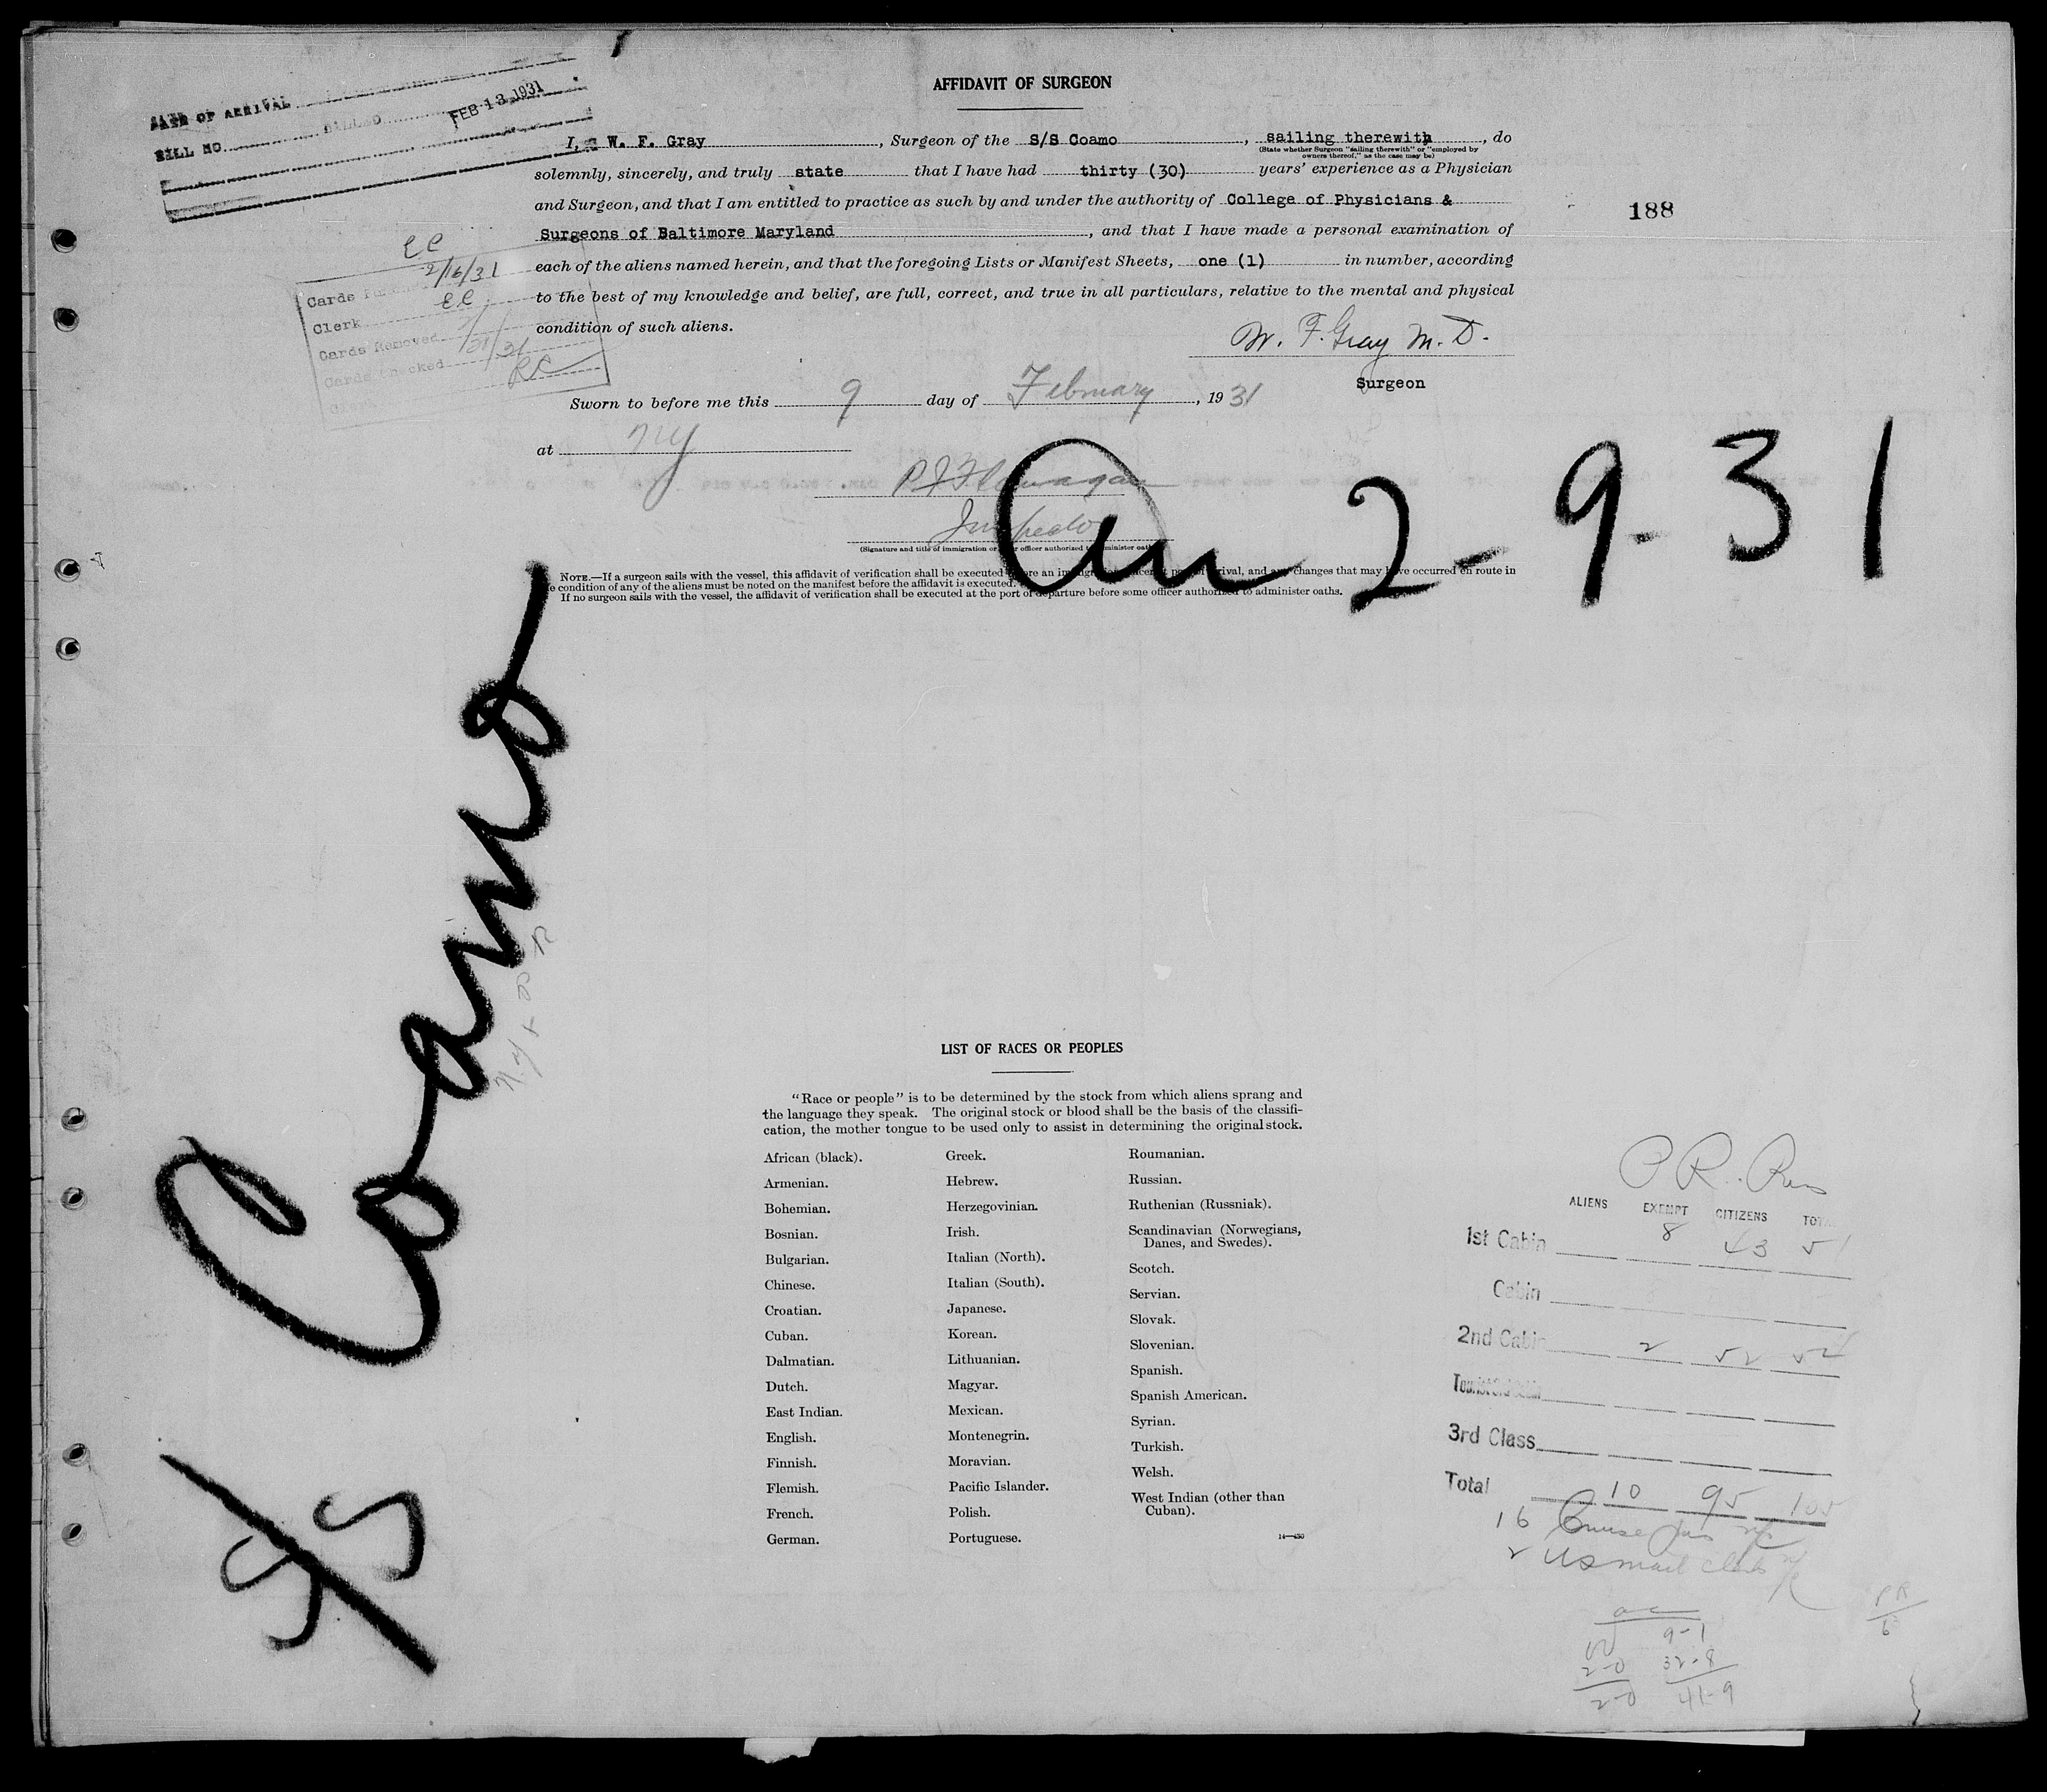 AFFIDAVIT OF SURGEON
DATE OF ARRIVAL
BILL NO.
FEB 13 1931
I, W. F. Gray, Surgeon of the S/S Coamo, sailing therewith, do
(State whether Surgeon "sailing therewith" or "employed by
owners thereof," as the case may be)
solemnly, sincerely, and truly state that I have had thirty (30) years' experience as a Physician
and Surgeon, and that I am entitled to practice as such by and under the authority of College of Physicians &
188
Surgeons of Baltimore Maryland, and that I have made a personal examination of
each of the aliens named herein, and that the foregoing Lists or Manifest Sheets, one (1) in number, according
to the best of my knowledge and belief, are full, correct, and true in all particulars, relative to the mental and physical
condition of such aliens.
EC
2/16/31
Cards
Clerk EC
Cards Removed
Cards Checked
W. F. Gray M. D.
Surgeon
Sworn to before me this 9 day of February, 1931
at NY
P J Flanagan
Inspector
(Signature and title of immigration or other officer authorized to administer oaths)
Arr 2-9-31
NOTE.—If a surgeon sails with the vessel, this affidavit of verification shall be executed before an immigration officer at port of arrival, and any changes that may have occurred en route in
e condition of any of the aliens must be noted on the manifest before the affidavit is executed.
If no surgeon sails with the vessel, the affidavit of verification shall be executed at the port of departure before some officer authorized to administer oaths.
S/S Coamo
LIST OF RACES OR PEOPLES
"Race or people" is to be determined by the stock from which aliens sprang and
the language they speak. The original stock or blood shall be the basis of the classifi-
cation, the mother tongue to be used only to assist in determining the original stock.
African (black).
Armenian.
Bohemian.
Bosnian.
Bulgarian.
Chinese.
Croatian.
Cuban.
Dalmatian.
Dutch.
East Indian.
English.
Finnish.
Flemish.
French.
German.
Greek.
Hebrew.
Herzegovinian.
Irish.
Italian (North).
Italian (South).
Japanese.
Korean.
Lithuanian.
Magyar.
Mexican.
Montenegrin.
Moravian.
Pacific Islander.
Polish.
Portuguese.
Roumanian.
Russian.
Ruthenian (Russniak).
Scandinavian (Norwegians,
Danes, and Swedes).
Scotch.
Servian.
Slovak.
Slovenian.
Spanish.
Spanish American.
Syrian.
Turkish.
Welsh.
West Indian (other than
Cuban).
P R
ALIENS EXEMPT CITIZENS TOTAL
1st Cabin 8 43 51
Cabin
2nd Cabin 2 52 54
3rd Class
Total 10 95 105
16 Cruise
2 US mail clerks
9-1
2-0 32-8
2-0 41-9
PR
6